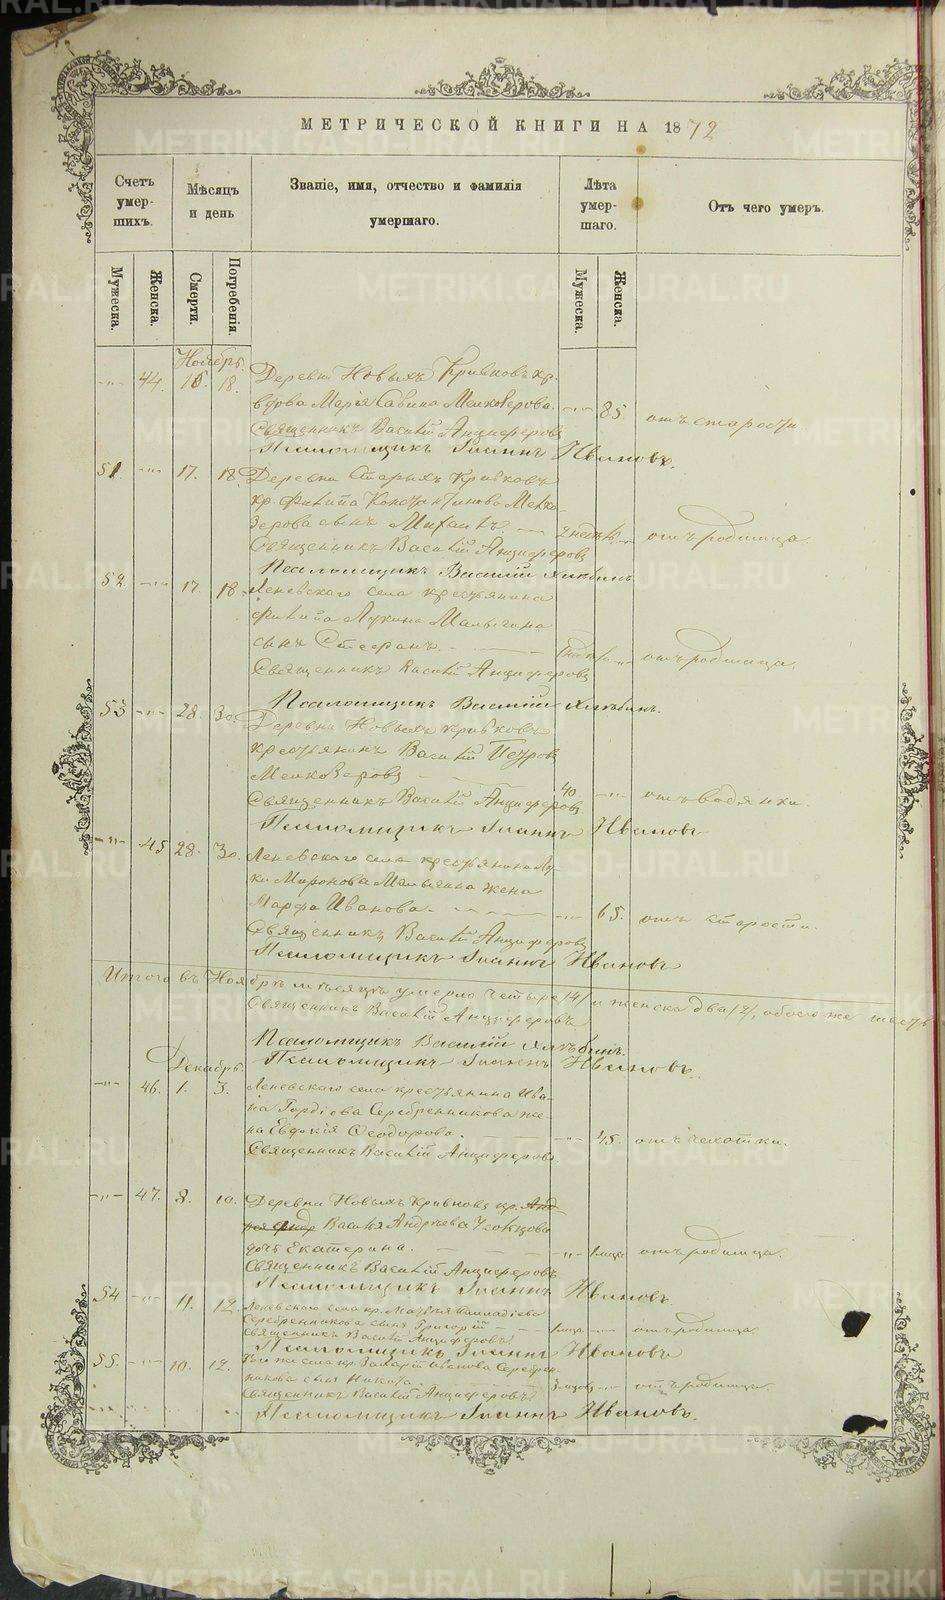 МЕТРИЧЕСКОЙ КНИГИ НА 1872
Счетъ умер- шихъ.
Мѣсяцъ и день
Званіе, имя, отчество и фамилія умершаго.
Лѣта умер- шаго.
Отъ чего умеръ.
Мужеска.
Женска.
Смерти.
Погребенія.
Мужеска.
Женска.
Ноябрь.
-"- 44. 15. 18. Деревни Новыхъ Кривковъ кр.
вдова Марія Савина Мелкозерова. -"- 85. отъ старости.
Священникъ Василій Анциферовъ
Псаломщикъ Іоаннъ Ивановъ.
51 -"- 17. 18. Деревни Старыхъ Кривковъ
кр. Филипа Константинова Мелко-
зерова сынъ Михаилъ. 2 недѣль -"- отъ родимца.
Священникъ Василій Анциферовъ
Псаломщикъ Василій Хлѣбинъ
52. -"- 17. 18. Леневскаго села крестьянина
Филипа Лукина Малыгина
сынъ Стефанъ. -"- отъ родимца.
Священникъ Василій Анциферовъ
Псаломщикъ Василій Хлѣбинъ.
53 -"- 28. 30. Деревни Новыхъ Кривковъ
крестьянинъ Василій Петровъ
Мелкозеровъ 40 -"- отъ водянки.
Священникъ Василій Анциферовъ
Псаломщикъ Іоаннъ Ивановъ
-"- 45 28. 30. Леневскаго села крестьянина Лу-
ки Миронова Малыгина жена
Марфа Иванова. -"- 65. отъ старости.
Священникъ Василій Анциферовъ
Псаломщикъ Іоаннъ Ивановъ
Итого въ Ноябрѣ мѣсяцѣ умерло четыре /4/ и женска два /2/, обоего же шесть
Священникъ Василій Анциферовъ
Псаломщикъ Василій Хлѣбинъ.
Псаломщикъ Іоаннъ Ивановъ.
Декабрь.
-"- 46. 1. 3. Леневскаго села крестьянина Ива-
на Гордіева Серебренникова же-
на Евдокія Ѳеодорова. -"- 45. отъ чахотки.
Священникъ Василій Анциферовъ
-"- 47. 8. 10. Деревни Новыхъ Кривковъ кр. Анд-
Василія Андреева
дочь Екатерина. -"- 1 мца отъ родимца.
Священникъ Василій Анциферовъ
Псаломщикъ Іоаннъ Ивановъ
54 -"- 11. 12. Леневскаго села кр.
Серебренникова сынъ Григорій 1 мца. -"- отъ родимца
Священникъ Василій Анциферовъ
Псаломщикъ Іоаннъ Ивановъ
55. -"- 10. 12. Того же села кр. Захарія Иванова Серебрен-
никова сынъ Никита. -"- отъ родимца.
Священникъ Василій Анциферовъ
Псаломщикъ Іоаннъ Ивановъ.
METRIKI.GASO-URAL.RU